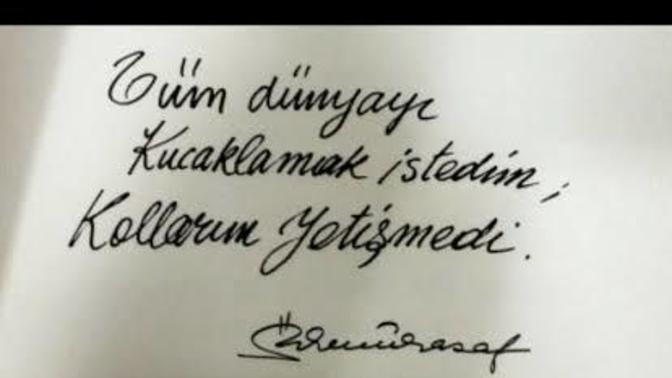 Tüm dünyayı
Kucaklamak istedim ;
Kollarım Yetişmedi .
Özdemir Asaf